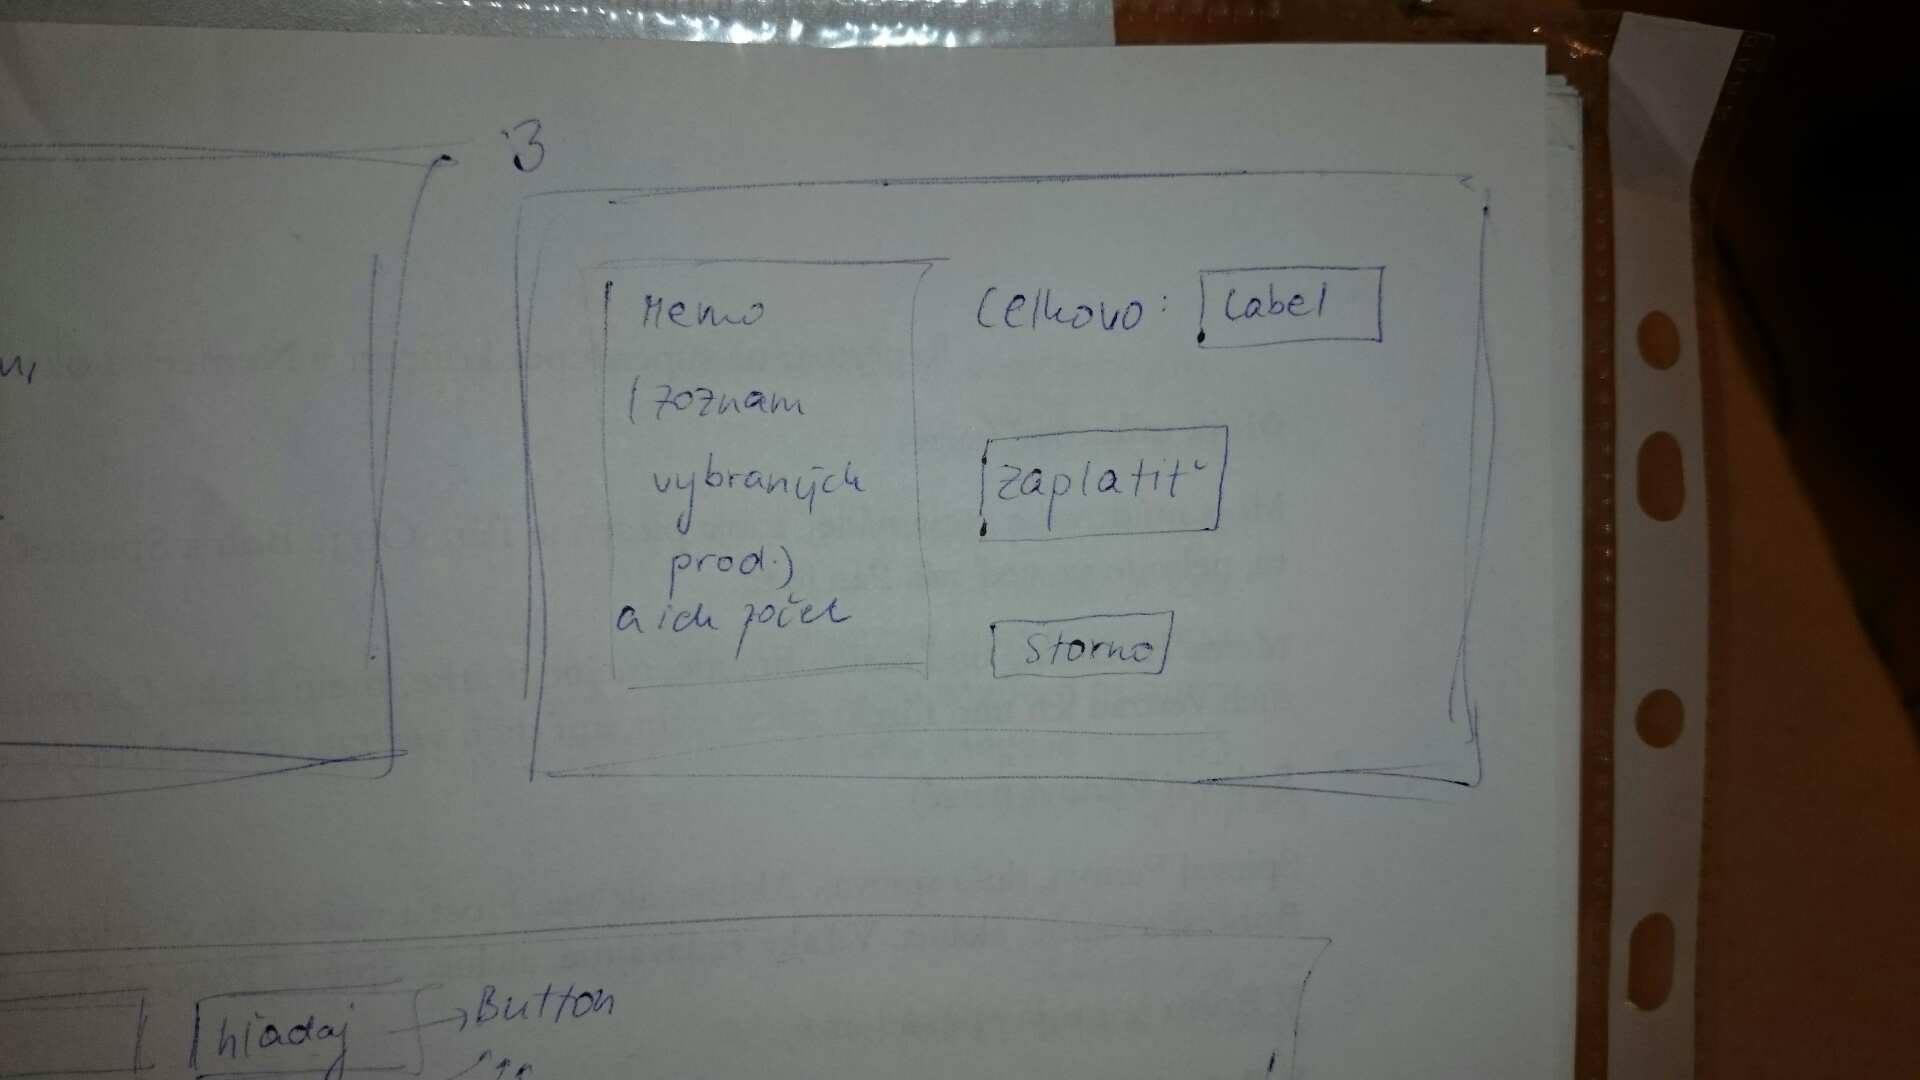 3
Memo
(zoznam
vybraných
prod.)
a ich počet
Celkovo: Label
Zaplatiť
Storno
hľadaj
Button